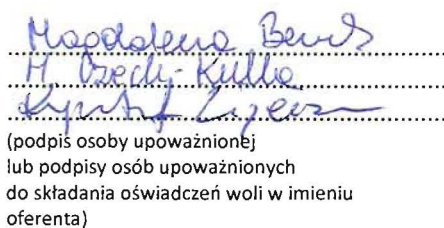 Magdalena
M. Czech-Kulka
Krzysztof
(podpis osoby upoważnionej
lub podpisy osób upoważnionych
do składania oświadczeń woli w imieniu
oferenta)